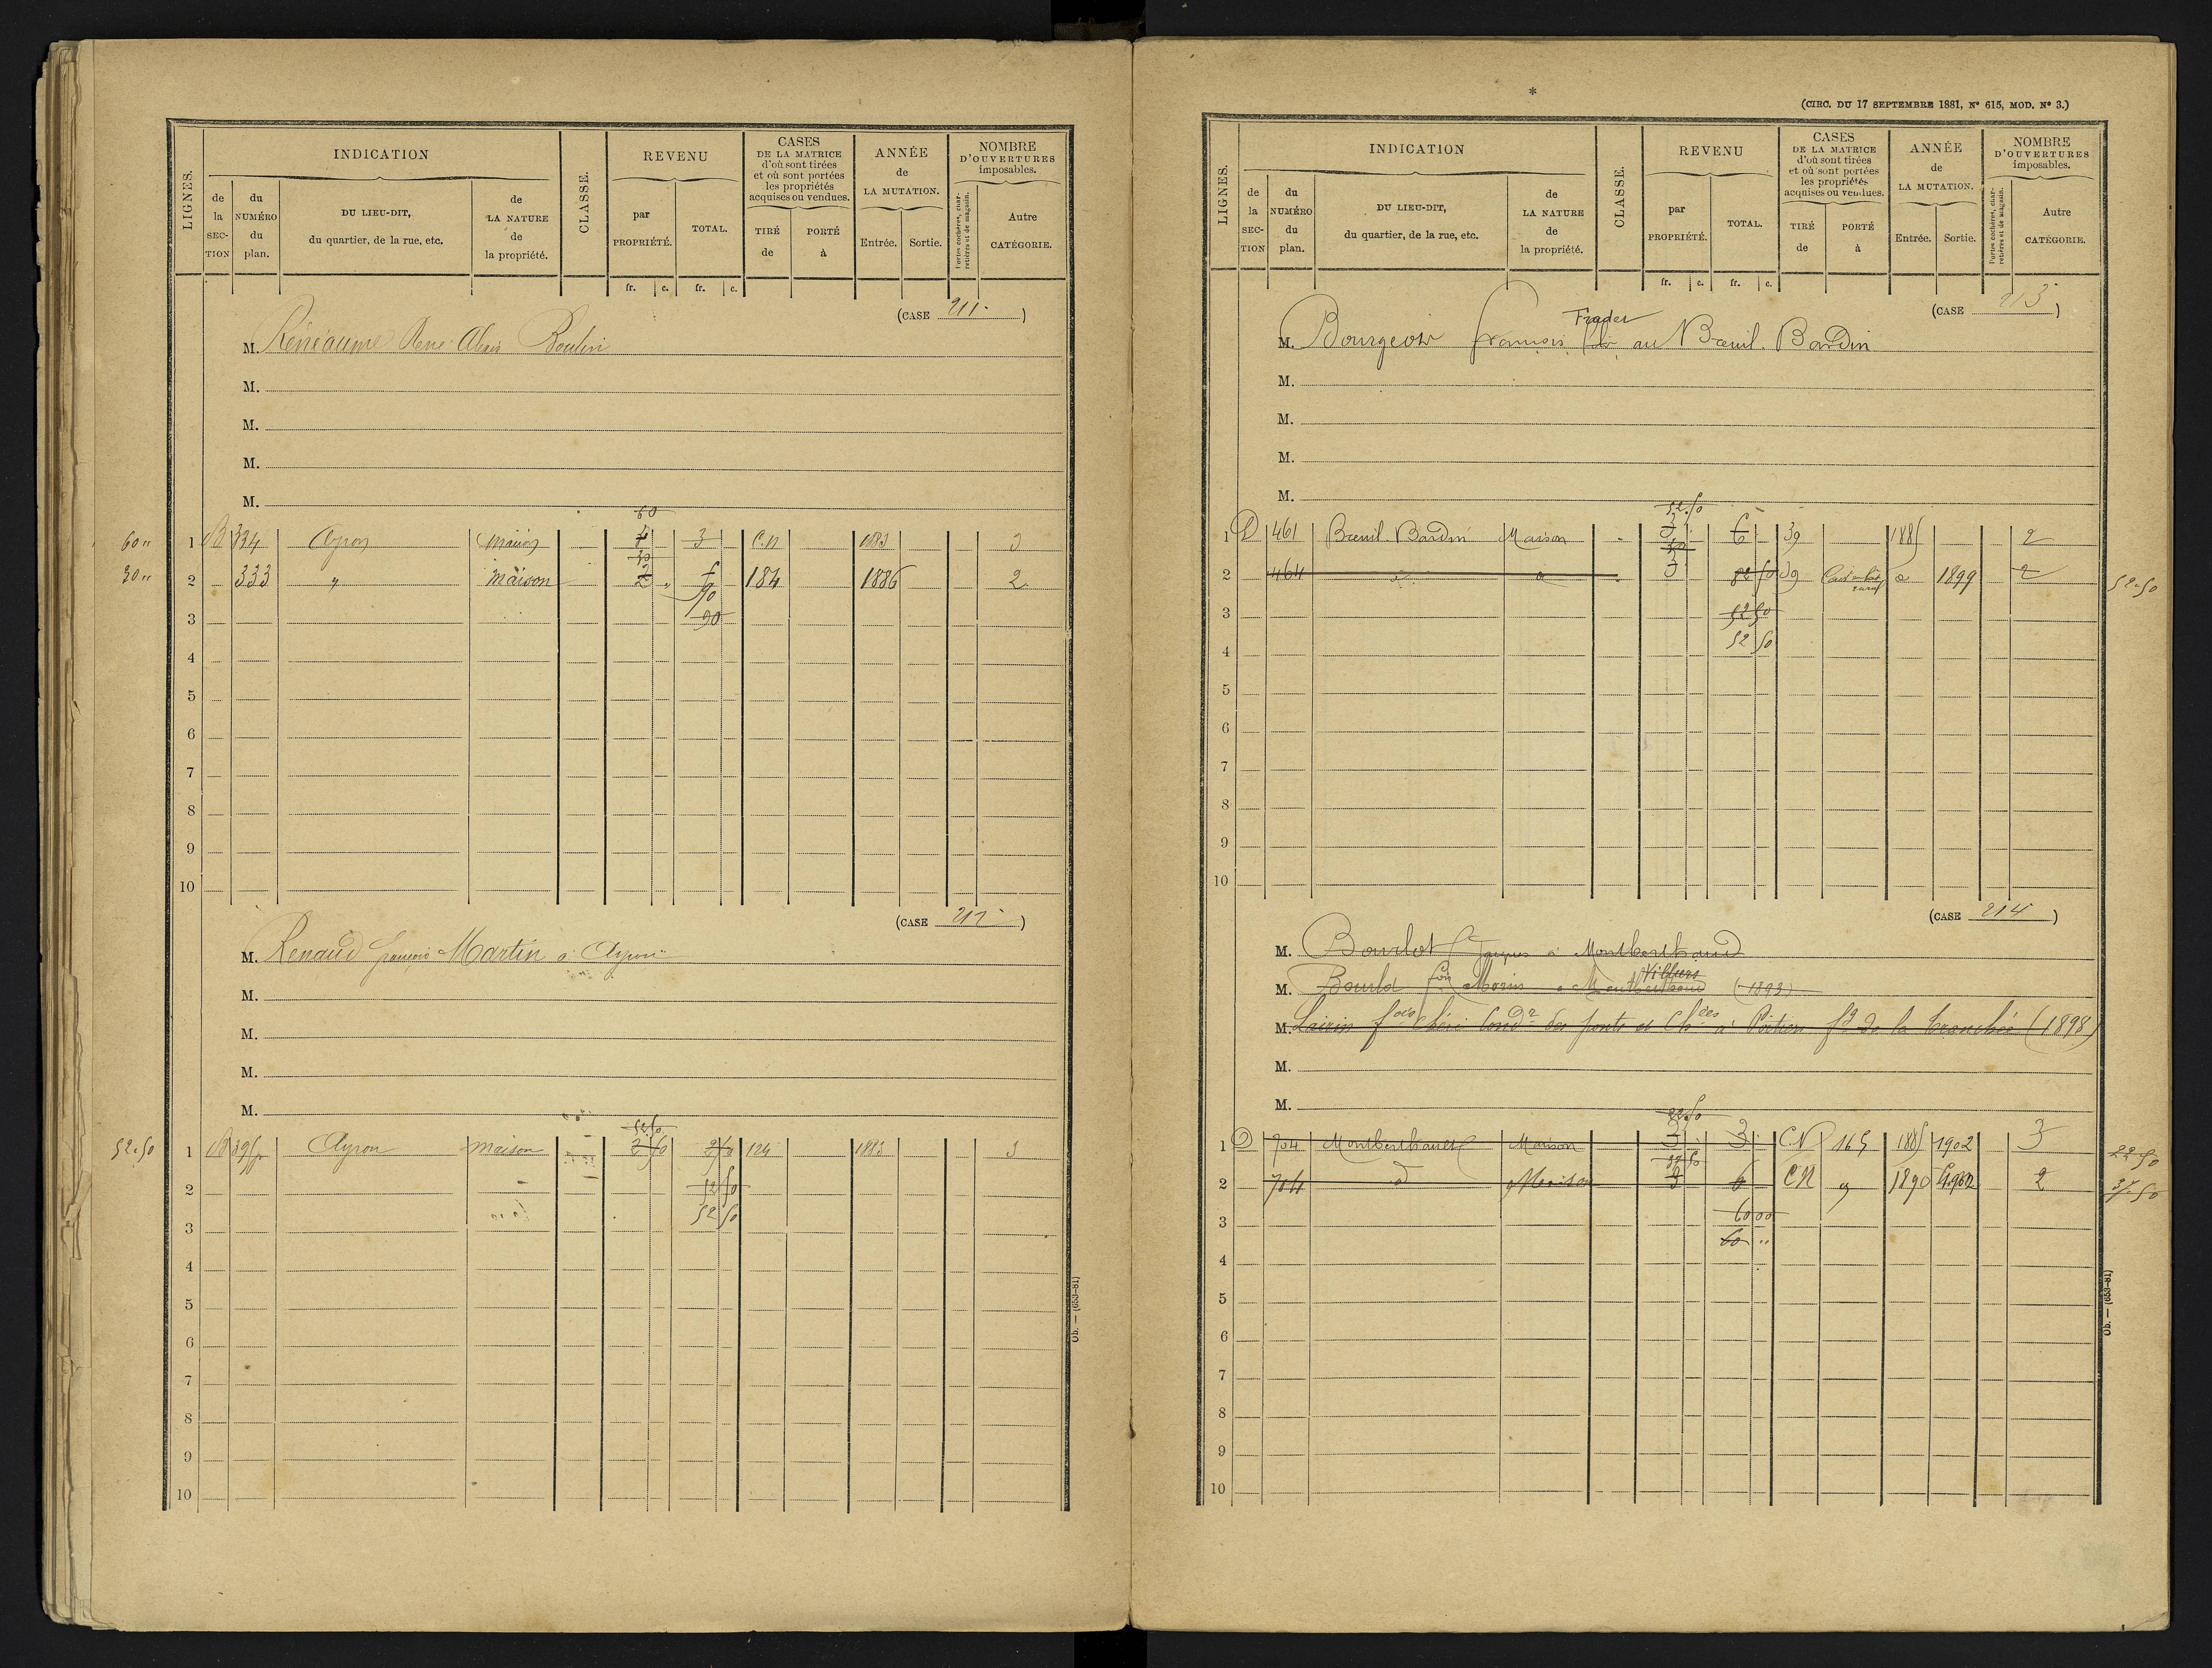 LIGNES.
INDICATION
de la SEC-TION
du NUMÉRO du plan.
DU LIEU-DIT, du quartier, de la rue, etc.
de LA NATURE de la propriété.
CLASSE.
REVENU
par PROPRIÉTÉ.
TOTAL.
CASES DE LA MATRICE d'où sont tirées et où sont portées les propriétés acquises ou vendues.
TIRÉ de
PORTÉ à
ANNÉE de LA MUTATION.
Entrée.
Sortie.
NOMBRE D'OUVERTURES imposables.
Portes cochères, charretières et de magasin.
Autre CATÉGORIE.
fr. c. fr. c.
(CASE 211 )
M. René Alexis Boulin
M.
M.
M.
M.
60
60 " 1 B 334 Ayron Maison 4 3 C.N 1883 3
30
30 " 2 333 " Maison 2 " 6 184 1886 2
90
3 90
4
5
6
7
8
9
10
(CASE 212 )
M. Renaud françois Martin à Ayron
M.
M.
M.
M.
52.50
52.50 1 B 395p Ayron maison 124 1883 3
2 52 50
52 50
3
4
5
6
7
8
9
10
Ob. — (653-81)
*
(CIRC. DU 17 SEPTEMBRE 1881, N° 615, MOD. N° 3.)
LIGNES.
INDICATION
de la SEC-TION
du NUMÉRO du plan.
DU LIEU-DIT, du quartier, de la rue, etc.
de LA NATURE de la propriété.
CLASSE.
REVENU
par PROPRIÉTÉ.
TOTAL.
CASES DE LA MATRICE d'où sont tirées et où sont portées les propriétés acquises ou vendues.
TIRÉ de
PORTÉ à
ANNÉE de LA MUTATION.
Entrée.
Sortie.
NOMBRE D'OUVERTURES imposables.
Portes cochères, charretières et de magasin.
Autre CATÉGORIE.
fr. c. fr. c.
(CASE 213 )
Frader
M. Bourgeois françois au Breuil-Bardin
M.
M.
M.
M.
52.50
1 D 461 Breuil-Bardin Maison 3 6 39 1885 2
30
2 464 d° d° 3 82 50 39 d° 1899 2 52.50
3 52 50
52 50
4
5
6
7
8
9
10
(CASE 214 )
M. Bourlot Jacques à Montbertrand
Villiers
M. Bourlot fçois Morin à Montbertrand (1893)
M. fçois Chéri Condr des ponts et Chées à Poitiers fg de la tranchée (1898)
M.
M.
22.50
1 D 704 Montbertrand Maison 3 3 C.N 165 1885 1902 3 22.50
37.50
2 704 d° Maison 3 6 CN 1890 1902 2 37.50
3 60 00
60 "
4
5
6
7
8
9
10
Ob. — (653-81)